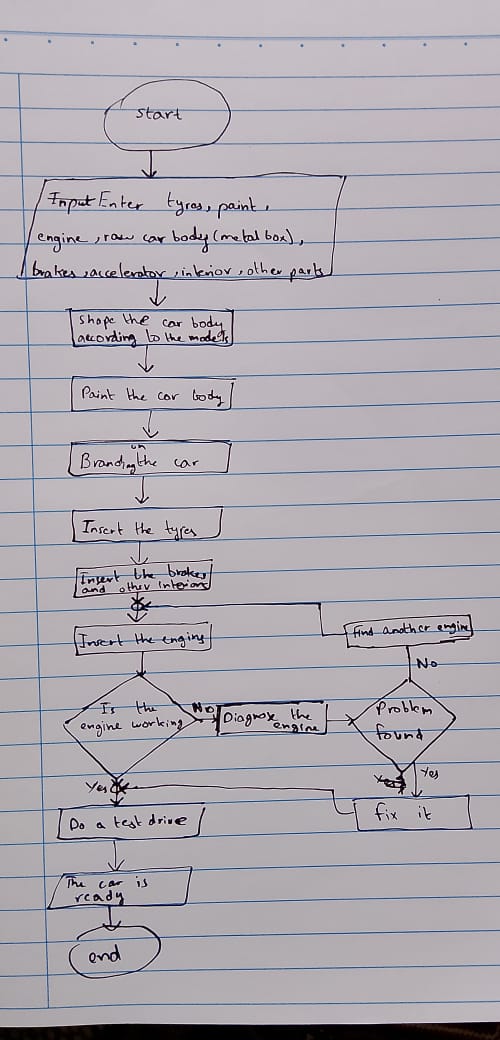 Start
Input Enter tyres, paint,
engine, raw car body (metal box),
brakes, accelerator, interior, other parts
Shape the car body
according to the models
Paint the car body
Branding on the car
Insert the tyres
Insert the brakes
and other interiors
Insert the engine
find another engine
No
Is the
engine working
No
Diagnose the
engine
Problem
found
Yes
Yes
Yes
Do a test drive
fix it
The car is
ready
end